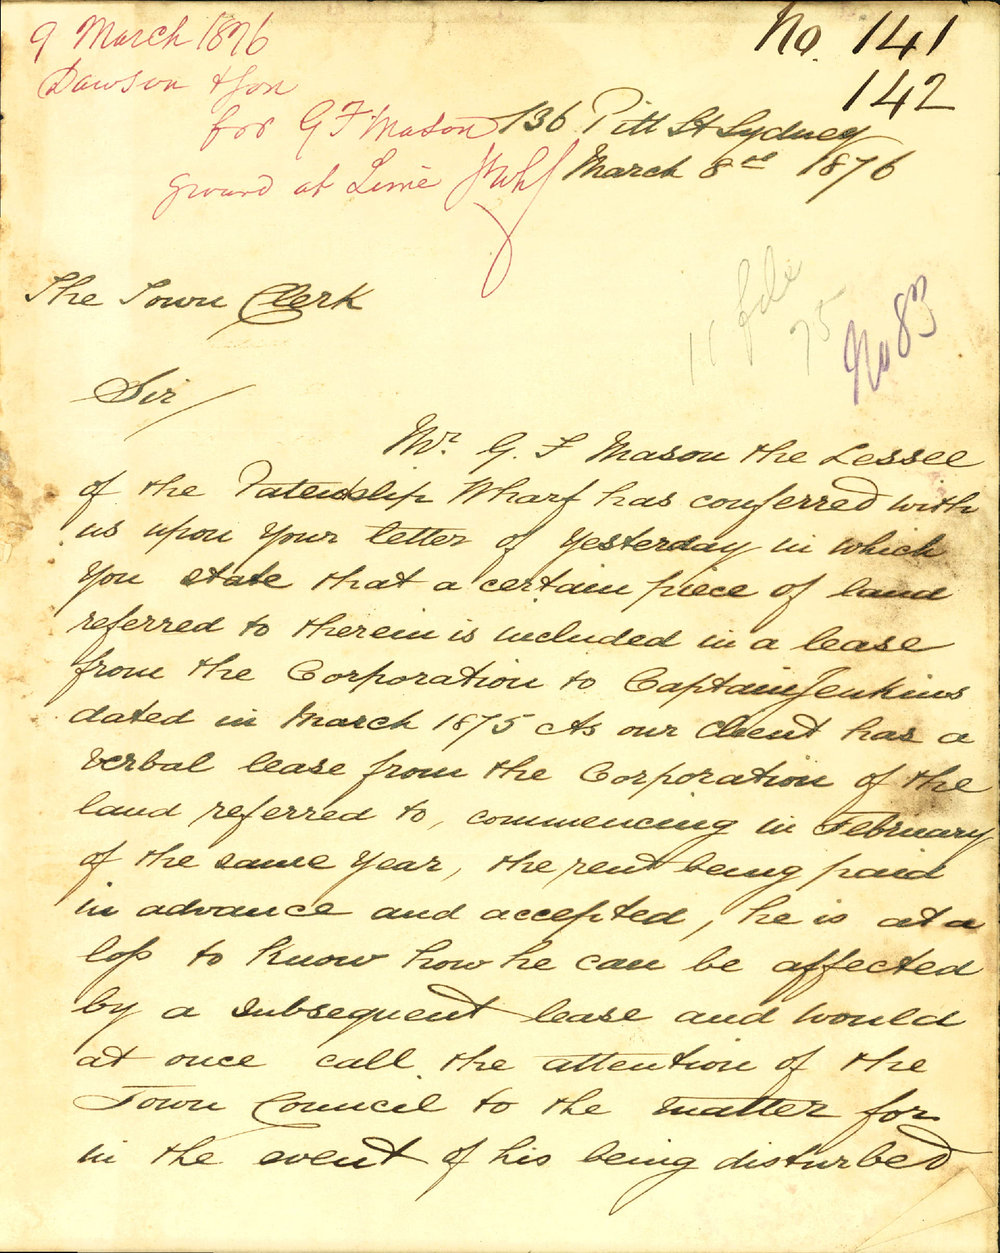 9 March 1876
Dawson & Son
for G F Mason
ground at Lime Whf
No. 141
142
136 Pitt St Sydney
March 8th 1876
11 feb
75
No 83
The Town Clerk
Sir
Mr. G. F Mason the Lessee
of the Patentslip Wharf has conferred with
us upon Your letter of Yesterday in which
You state that a certain piece of land
referred to therein is included in a lease
from the Corporation to Captain Jenkins
dated in March 1875 As our Client has a
verbal lease from the Corporation of the
land referred to, commencing in February
of the same Year, the rent being paid
in advance and accepted, he is at a
loss to know how he can be affected
by a subsequent lease and would
at once call the attention of the
Town Council to the matter for
in the event of his being disturbed